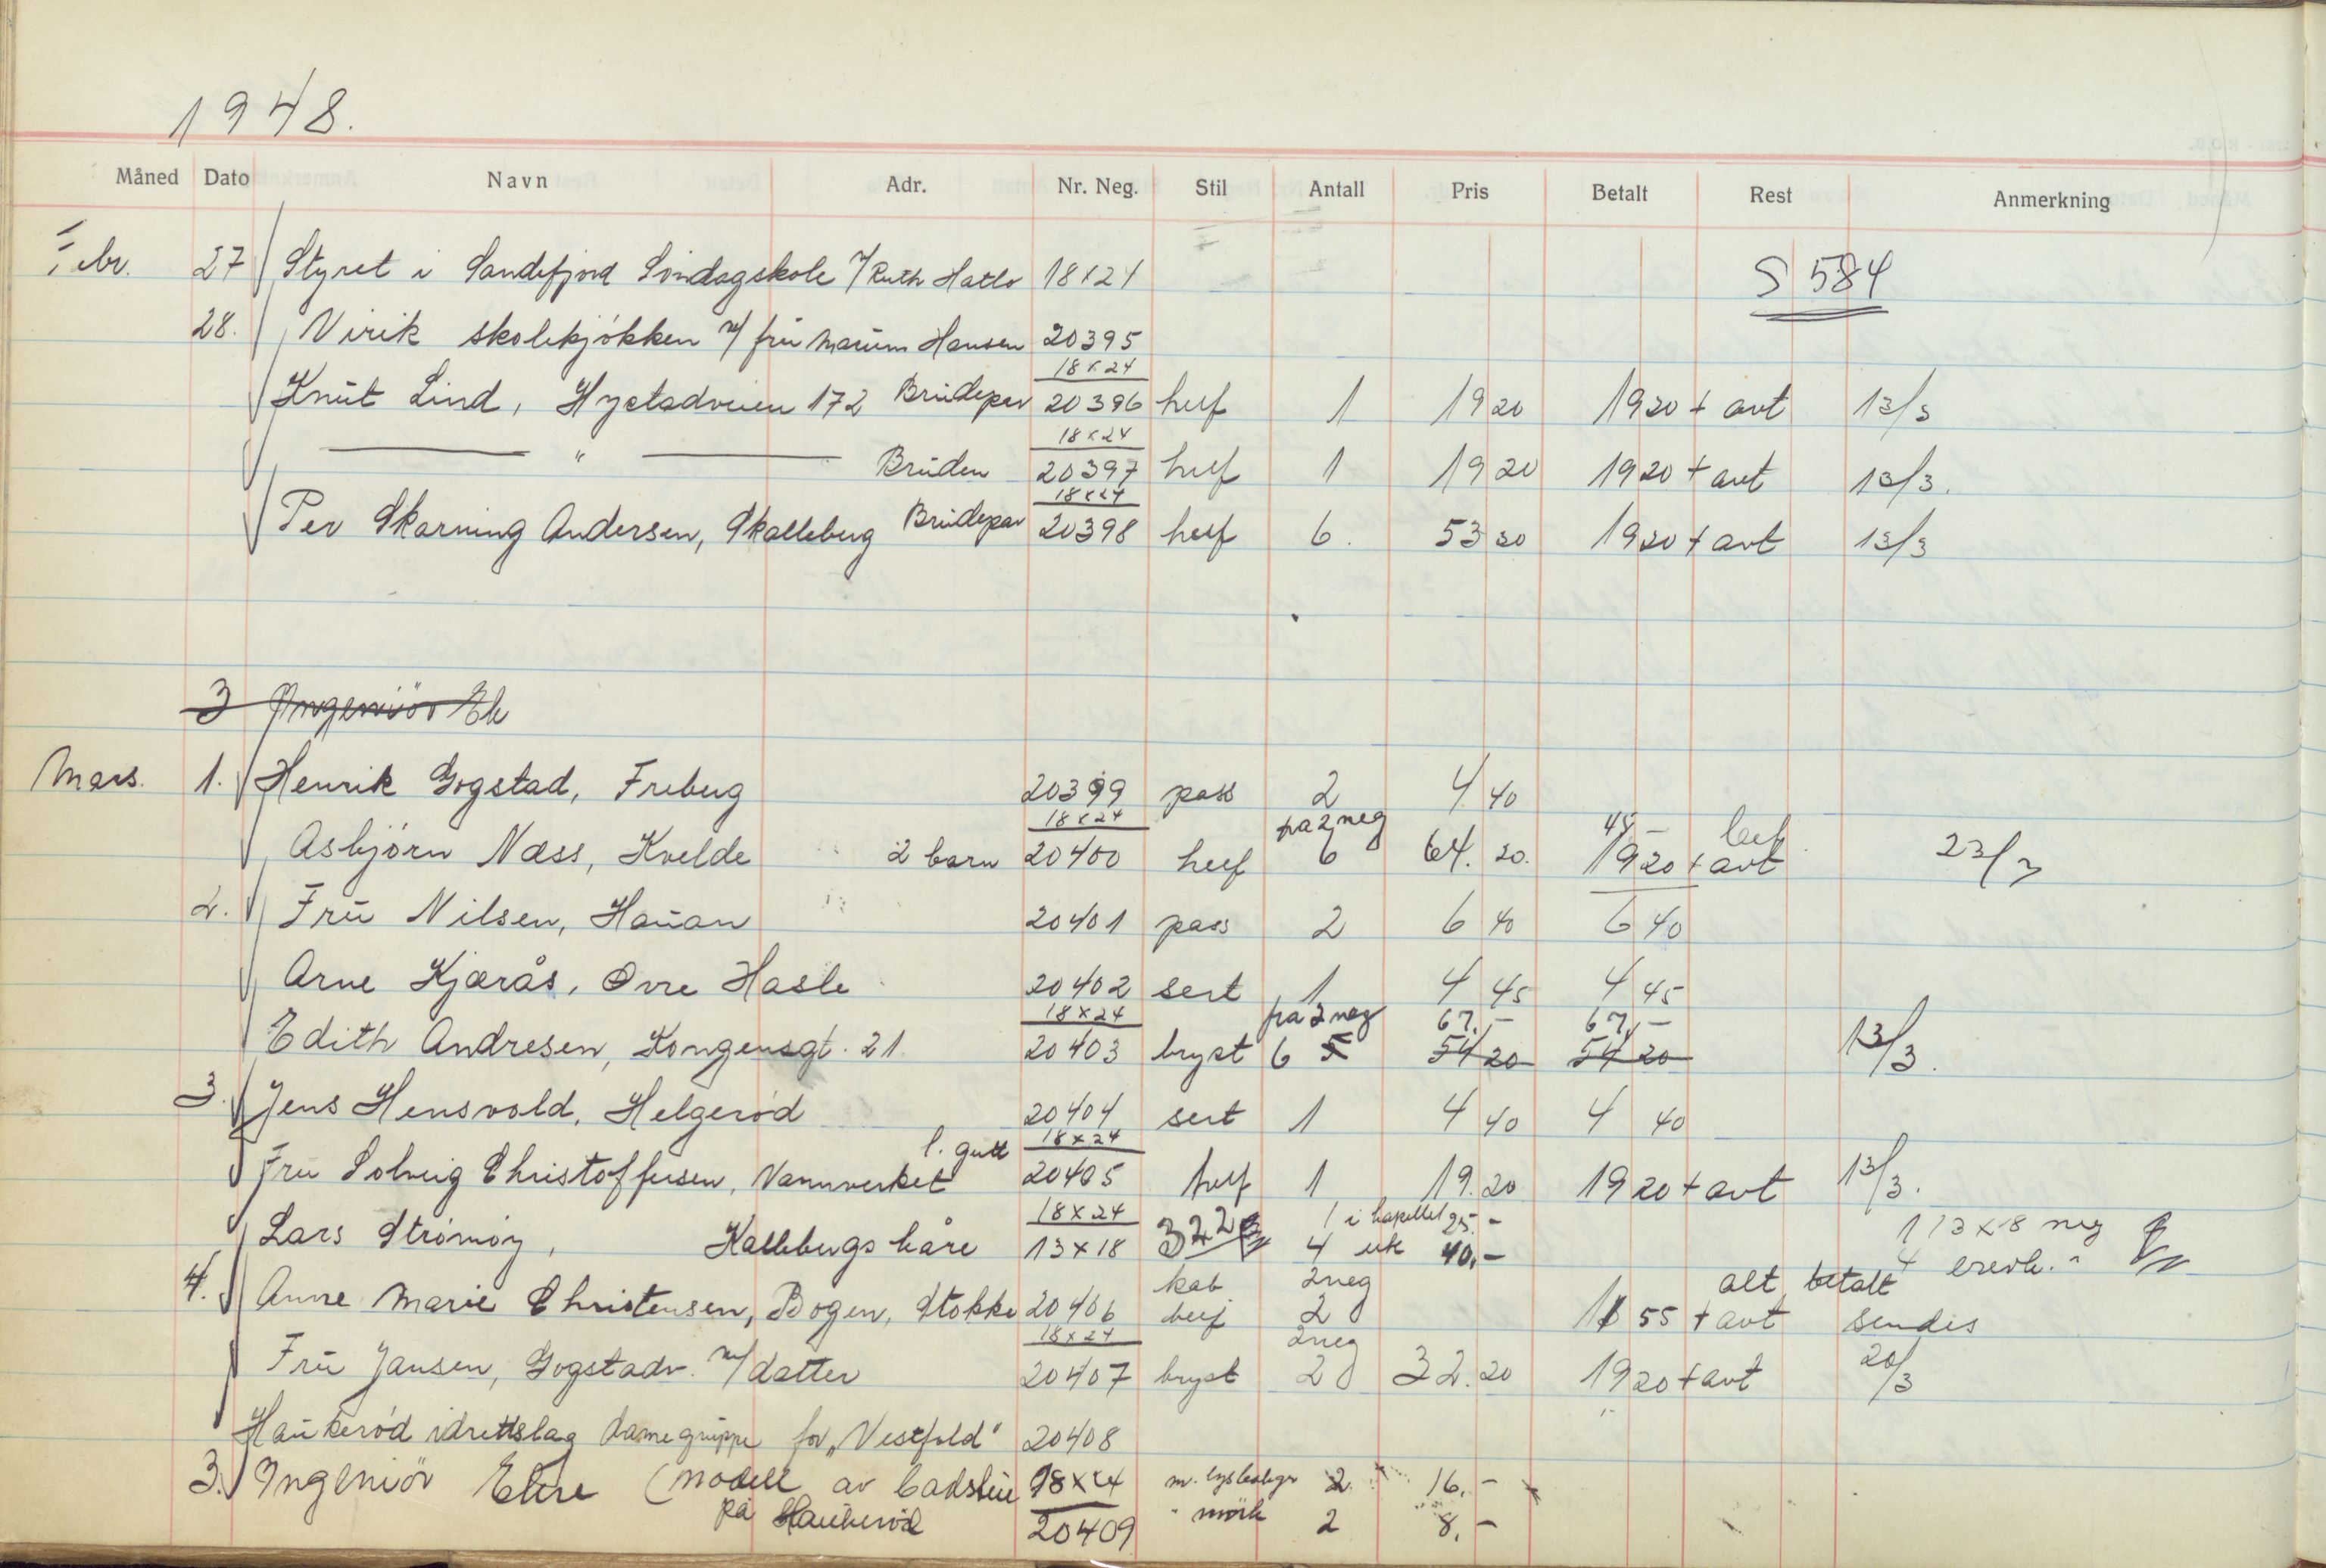 1948.
Måned Dato Navn Adr. Nr. Neg. Stil Antall Pris Betalt Rest Anmerkning
Febr. 27 Styret i Sandefjord Söndagskole v/ Ruth Hatlo 18x24 S 584
28. Virik skolekjökken v/ fru Hansen 20395
18x24
Knut Lind, Hystadveien 172 Brudepar 20396 helf 1 19 20 19 20 + avt 13/3
18x24
— " — Bruden 20397 helf 1 19 20 19 20 + avt 13/3.
18x24
Per Skarning Andersen, Skalleberg Brudepar 20398 helf 6. 53 20 19 20 + avt 13/3
3 Ingeniör Ek
Mars. 1. Henrik Gogstad, Freberg 20399 pass 2 4 40
18x24 fra 2 neg 45 – bet.
Asbjörn Næss, Kvelde 2 barn 20400 helf 6 64. 20. 19 20 + avt 23/3
2. Fru Nilsen, Hauan 20401 pass 2 6 40 6 40
Arne Kjærås, Øvre Hasle 20402 sert 1 4 45 4 45
18x24 fra 2 neg 67,– 67,–
Edith Andresen, Kongensgt. 21. 20403 bryst 6 5 54 20 54 20 13/3.
3. Jens Hensvold, Helgeröd 20404 sert 1 4 40 4 40
l. gutt 18x24
Fru Solveig Christoffersen, Vannverket 20405 helf 1 19. 20 19 20 + avt 13/3.
18x24 1 i kapellet 25.– 1 13x18 neg
Lars Strömöy, Kallebergs båre 13x18 322 4 utk 40,– 4
kab 2 neg alt betalt
4. Anne Marie Christensen, Bogen, Stokke 20406 helf 2 55 + avt sendes
18x24 2 neg
Fru Jansen, Gogstadv. m/ datter 20407 bryst 2 32. 20 19 20 + avt 20/3
Haukeröd idrettslag damegruppe for "Vestfold" 20408
3. Ingeniör (Modell av badstue 18x24 m. 2. 16.–
på Haukeröd 20409 " mörk 2 8.–